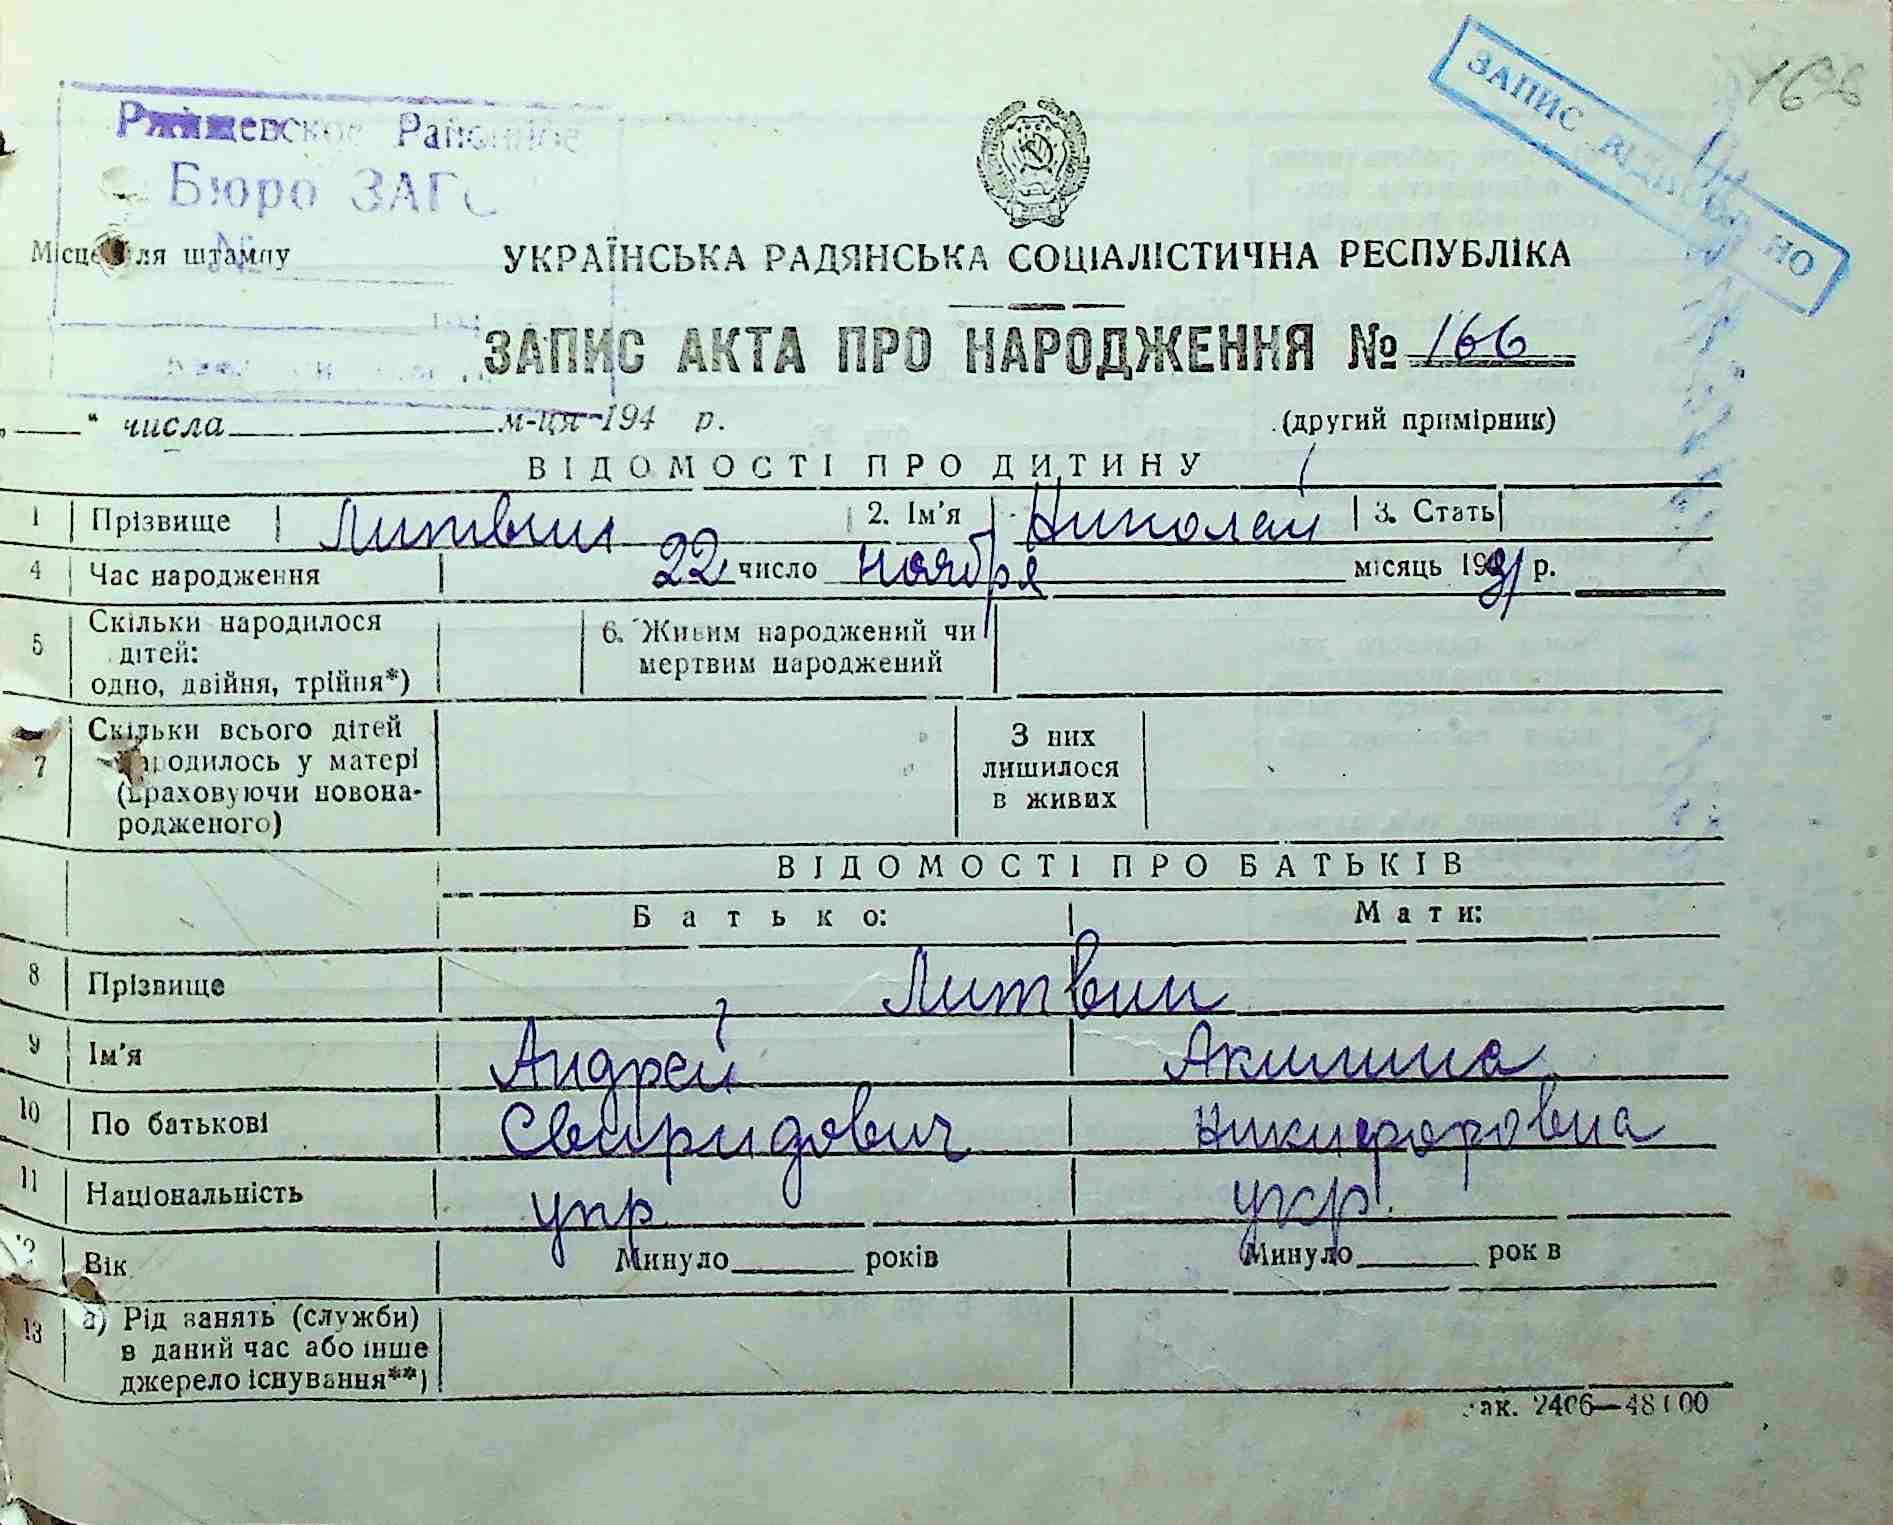 Ржищевское Районное
Бюро ЗАГС
№
Місце для штампу
ЗАПИС ВІДНОВЛЕНО
УКРАЇНСЬКА РАДЯНСЬКА СОЦІАЛІСТИЧНА РЕСПУБЛІКА
ЗАПИС АКТА ПРО НАРОДЖЕННЯ № 166
„ “ числа м-ця 194 р. (другий примірник)
ВІДОМОСТІ ПРО ДИТИНУ
1 Прізвище Литвин 2. Ім'я Николай 3. Стать
4 Час народження 22 число ноября місяць 1931 р.
5 Скільки народилося 6. Живим народжений чи
дітей: мертвим народжений
одно, двійня, трійня*)
7 Скільки всього дітей З них
народилось у матері лишилося
(враховуючи новона- в живих
родженого)
ВІДОМОСТІ ПРО БАТЬКІВ
Батько: Мати:
8 Прізвище Литвин
9 Ім'я Андрей Акилина
10 По батькові Свиридович Никифоровна
11 Національність укр укр.
12 Вік Минуло років Минуло років
13 а) Рід занять (служби)
в даний час або інше
джерело існування**)
Зак. 2406—48100